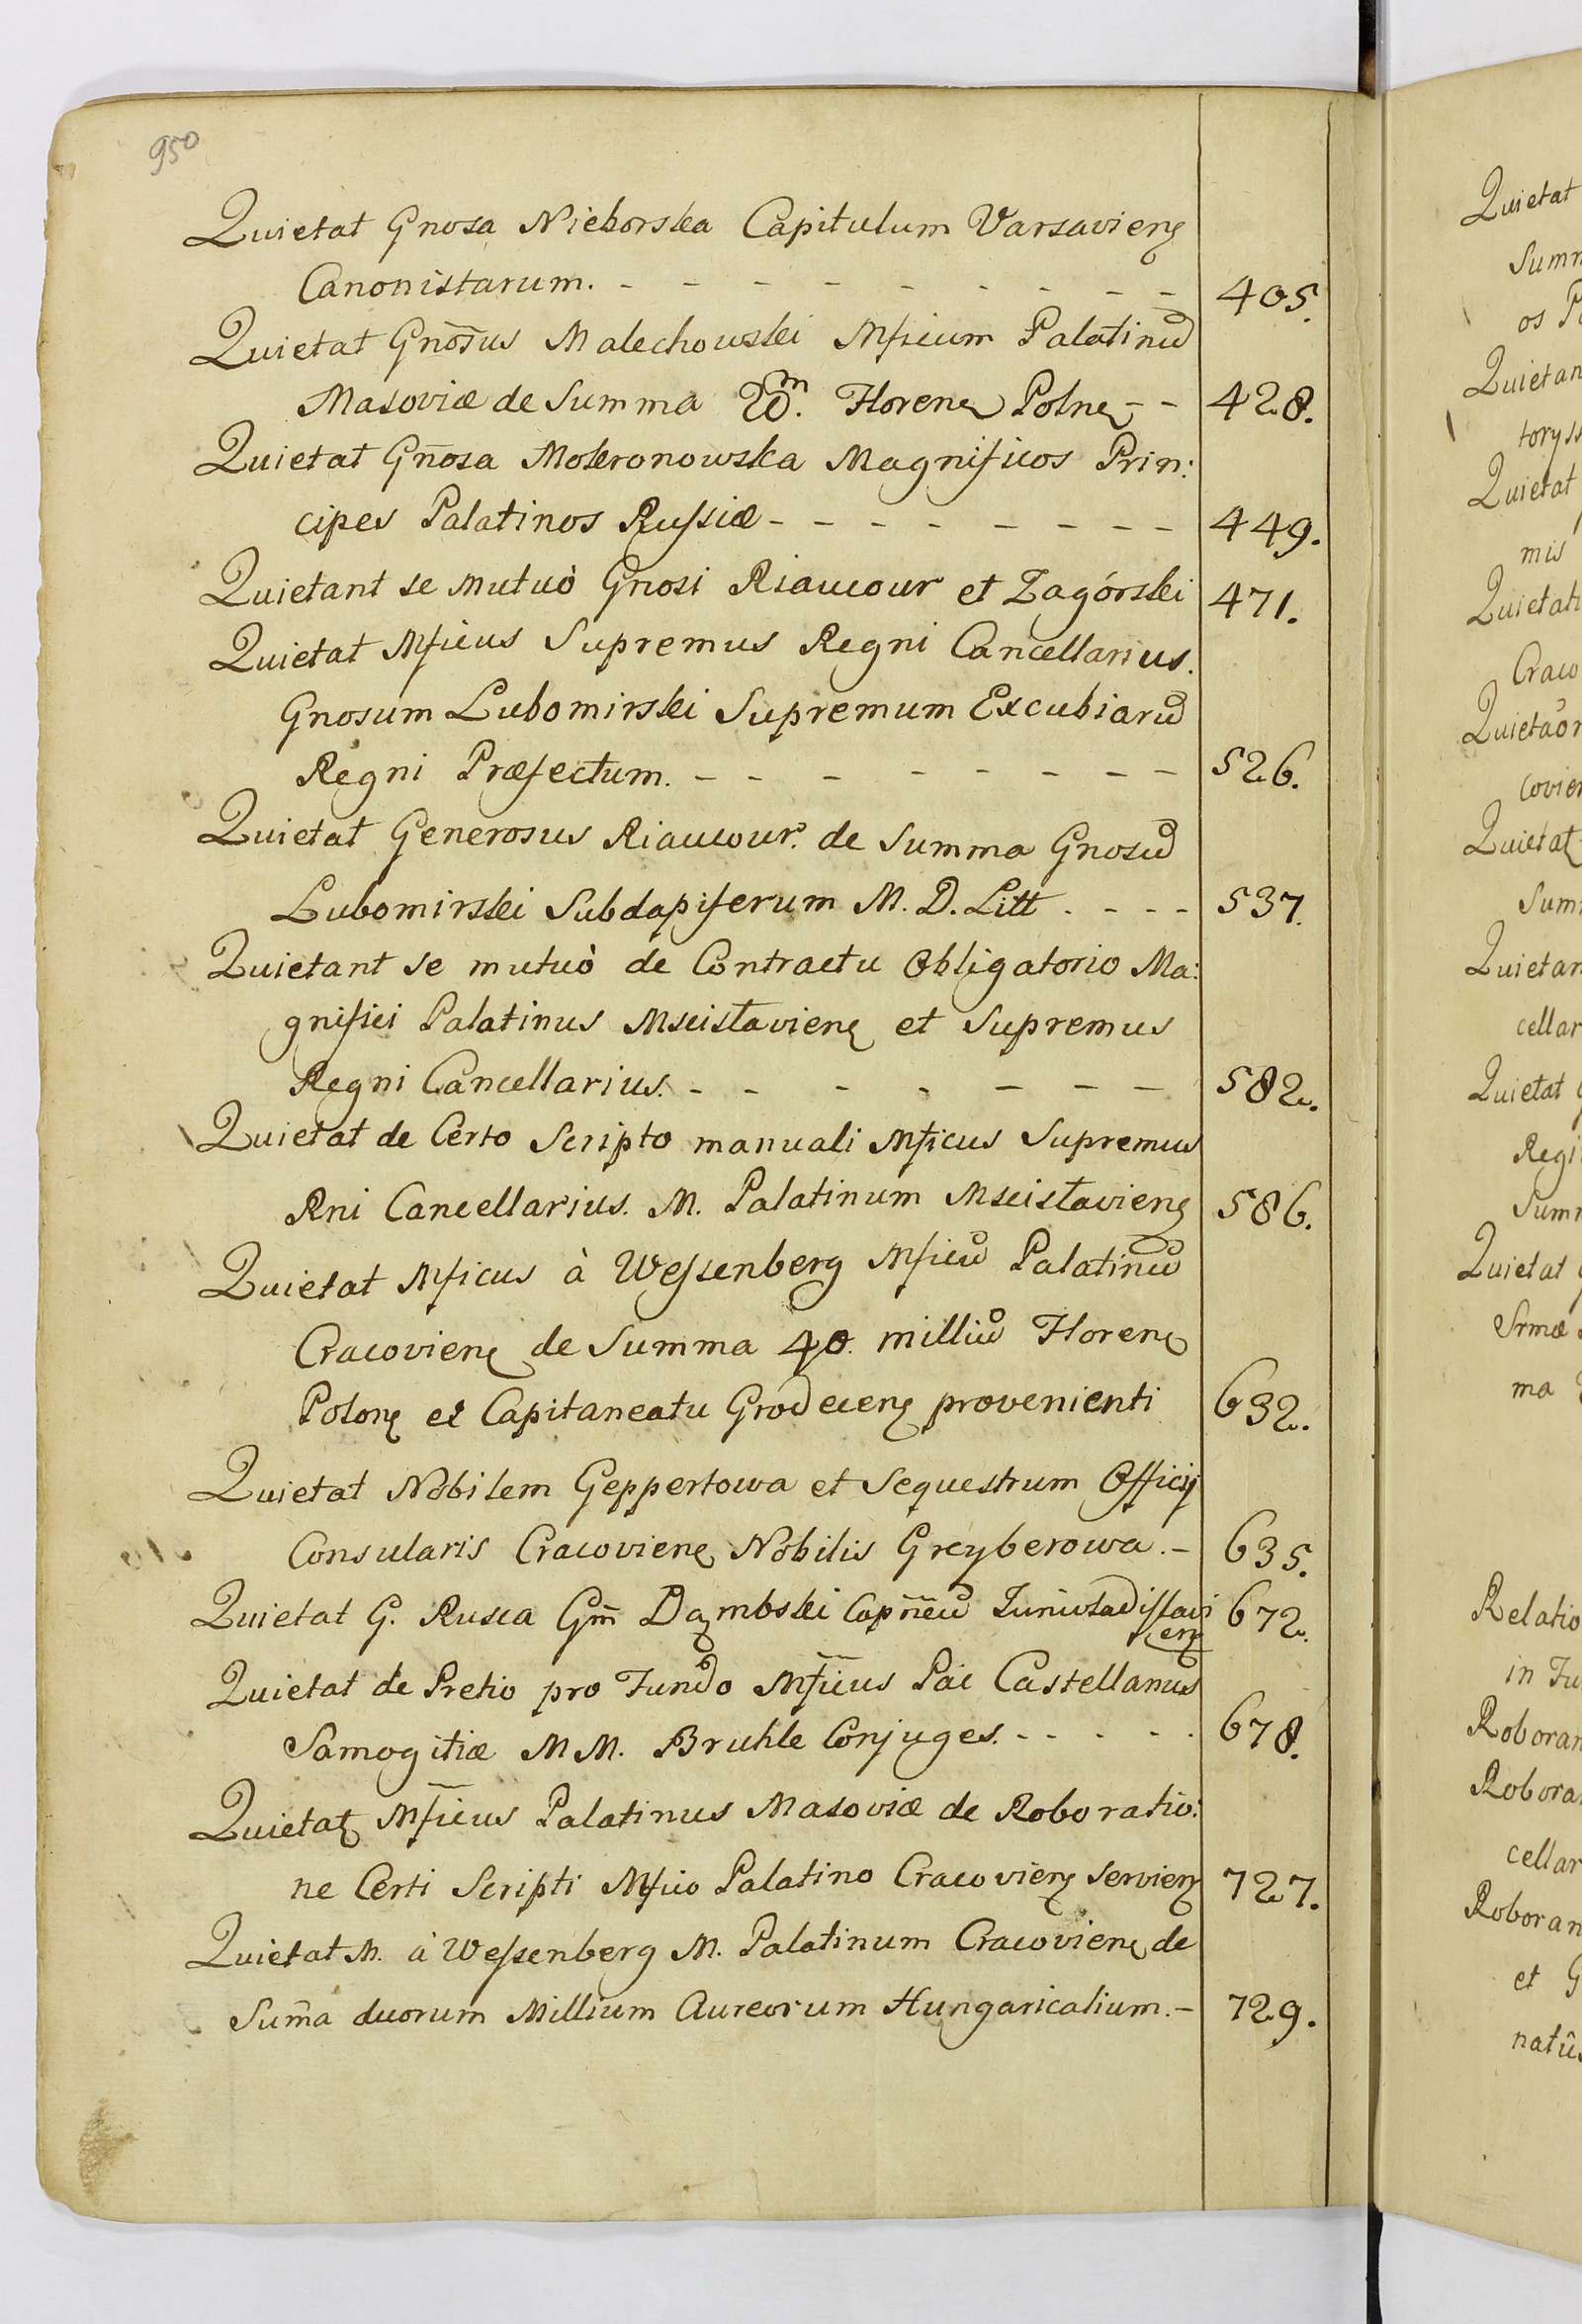 950
Quietat Gnosa Nieborska Capitulum Varsavieng
Canonistarum. - - - - - - - - - - 405.
Quietat Gnosus Malechowski Mficum Palatinū
Masoviæ de Summa 20.m Floreng Polng - - 428.
Quietat Gnosa Mokronowska Magnificos Prin:
cipes Palatinos Russiæ - - - - - - - - 449.
Quietant se mutuò Gnosi Riaucour et Zagórski 471.
Quietat Mficus Supremus Regni Cancellarius.
Gnosum Lubomirski Supremum Excubiarū
Regni Præfectum. - - - - - - - - 526.
Quietat Generosus Riaucour. de Summa Gnosū
Lubomirski Subdapiferum M. D. Litt . - - - 537.
Quietant se mutuò de Contractu Obligatorio Ma:
gnifici Palatinus Mscislavieng et Supremus
Regni Cancellarius. - - - - - - - 582.
Quietat de Certo Scripto manuali Mficus Supremus
Rni Cancellarius. M. Palatinum Mscislavieng 586.
Quietat Mficus à Wessenberg Mficū Palatinū
Cracovieng de Summa 40. milliū Floreng
Polong ex Capitaneatu Grodeceng provenienti 632.
Quietat Nobilem Geppertowa et Sequestrum Officij
Consularis Cracovieng Nobilis Greyberowa. - 635.
Quietat G. Rusca Gm̄ Dąmbski Capn̄eū 672.
eng
Quietat de Pretio pro Fundo Mficus Pac Castellanus
Samogitiæ M M. Bruhle Conjuges. - - - - - 678.
Quietatg Mficus Palatinus Masoviæ de Roboratio:
ne Certi Scripti Mfico Palatino Cracovieng servieng 727.
Quietat M. à Wessenberg M. Palatinum Cracovieng de
Sum̄a duorum Millium Aureorum Hungaricalium. - 729.
Quietat
os
Quietan
toryss
Quietat
mis
Craco
covien
Quietatg
Quietan
cellar
Quietat
Regi
Quietat
Srmæ
ma
Relatio
in Fu
Roboran
Robora
cellar
Roboran
et G